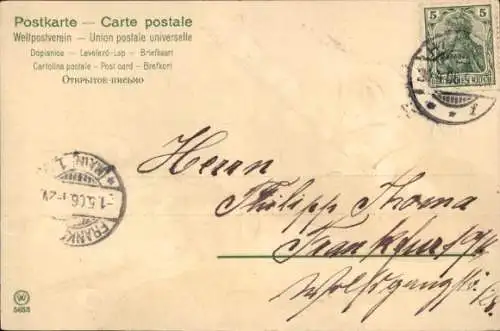 Postkarte — Carte postale
Weltpostverein — Union postale universelle
Dopisnice — Levelező-Lap — Briefkaart
Cartolina postale - Post card - Brefkort
Открытое письмо
5
5
Herrn
Philipp Thoma
Frankfurt
FRANKF
(MAIN) 1
1.5.06.
W